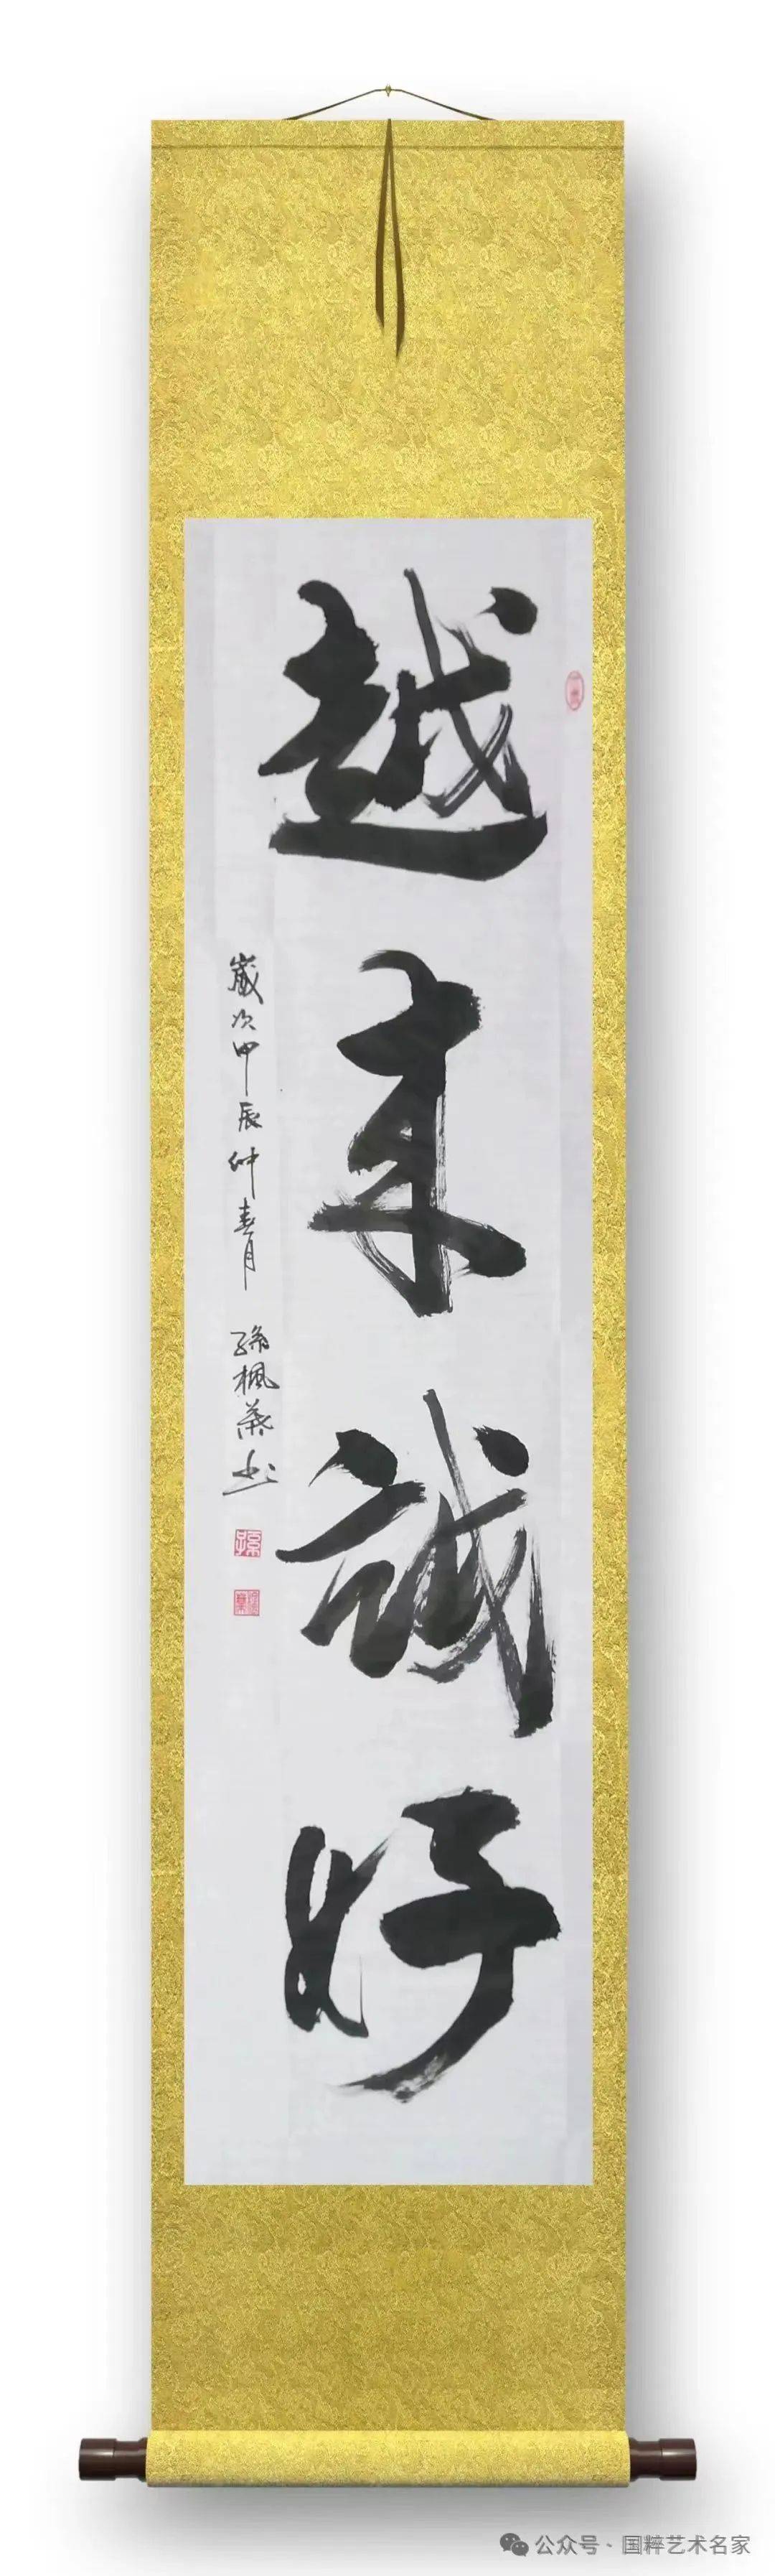 越来越好
歲次甲辰仲春月 孫楓葉书
公众号 · 国粹艺术名家